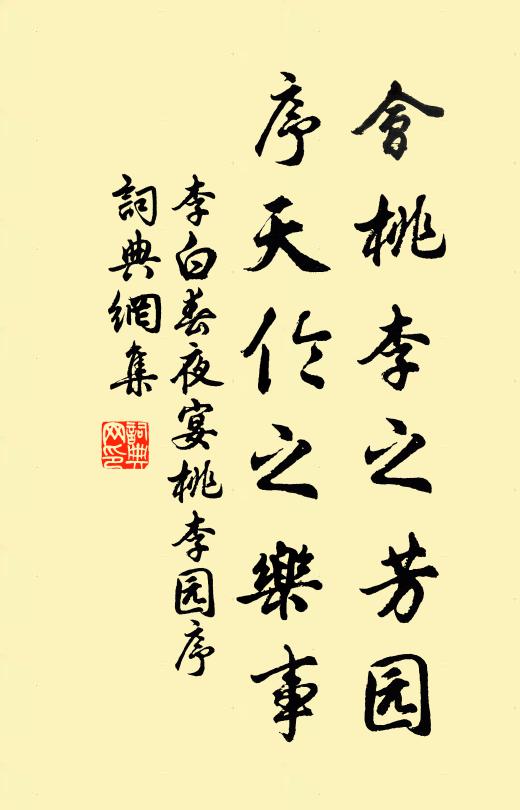 會桃李之芳园
序天伦之樂事
李白春夜宴桃李园序
詞典網集
詞典网印